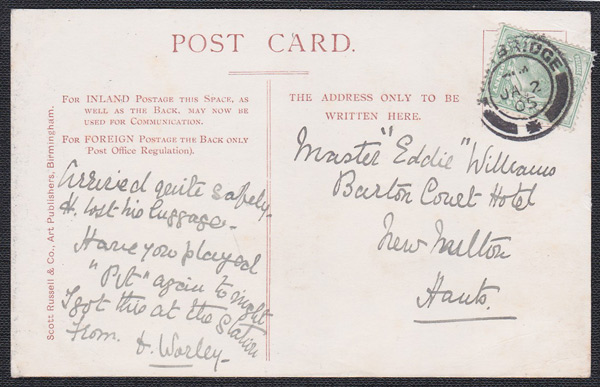 POST CARD.
FOR INLAND POSTAGE THIS SPACE, AS
WELL AS THE BACK, MAY NOW BE
USED FOR COMMUNICATION.
FOR FOREIGN POSTAGE THE BACK ONLY
POST OFFICE REGULATION).
THE ADDRESS ONLY TO BE
WRITTEN HERE.
Scott Russell & Co., Art Publishers, Birmingham.
Arrived quite safely.
H. lost his luggage.
Have you played
"Pit" again to night
I got this at the station
From.
Worley
Master "Eddie" Williams
Barton Court Hotel
New Milton
Hants.
BRIDGE
JA 2
05